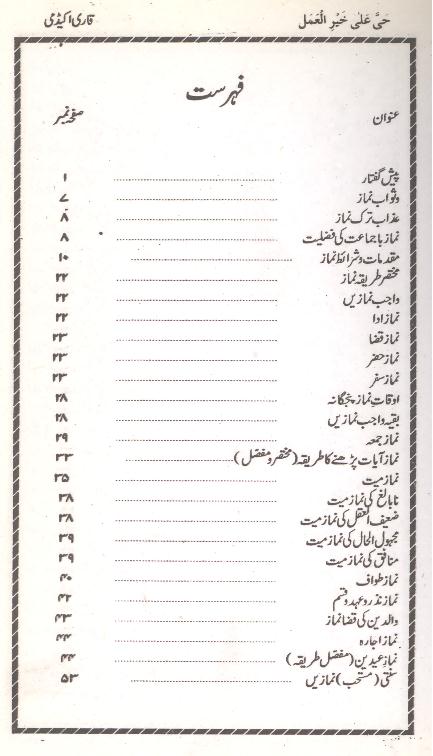 حَیَّ عَلٰی خَیْرِ الْعَمَل قاری اکیڈمی
فہرست
عنوان صفحہ نمبر
پیش گفتار ۱
وثواب نماز ۷
عذاب ترک نماز ۸
نماز باجماعت کی فضلیت ۸
مقدمات و شرائط نماز ۱۰
مختصر طریقہ نماز ۲۲
واجب نمازیں ۲۲
نماز ادا ۲۲
نماز قضا ۲۳
نماز حضر ۲۳
نماز سفر ۲۳
اوقاتِ نماز پنجگانہ ۲۸
بقیہ واجب نمازیں ۲۸
نماز جمعہ ۲۹
نماز آیات پڑھنے کا طریقہ (مختصر و مفصّل) ۳۳
نماز میت ۳۵
نابالغ کی نماز میت ۳۸
ضعیف العقل کی نماز میت ۳۸
مجہول الحال کی نماز میت ۳۹
منافق کی نماز میت ۳۹
نماز طواف ۴۰
نماز نذر و عہد و قسم ۴۲
والدین کی قضا نماز ۴۳
نماز اجارہ ۴۴
نماز عیدین (مفصّل طریقہ) ۴۴
سنّتی (مستحب) نمازیں ۵۳